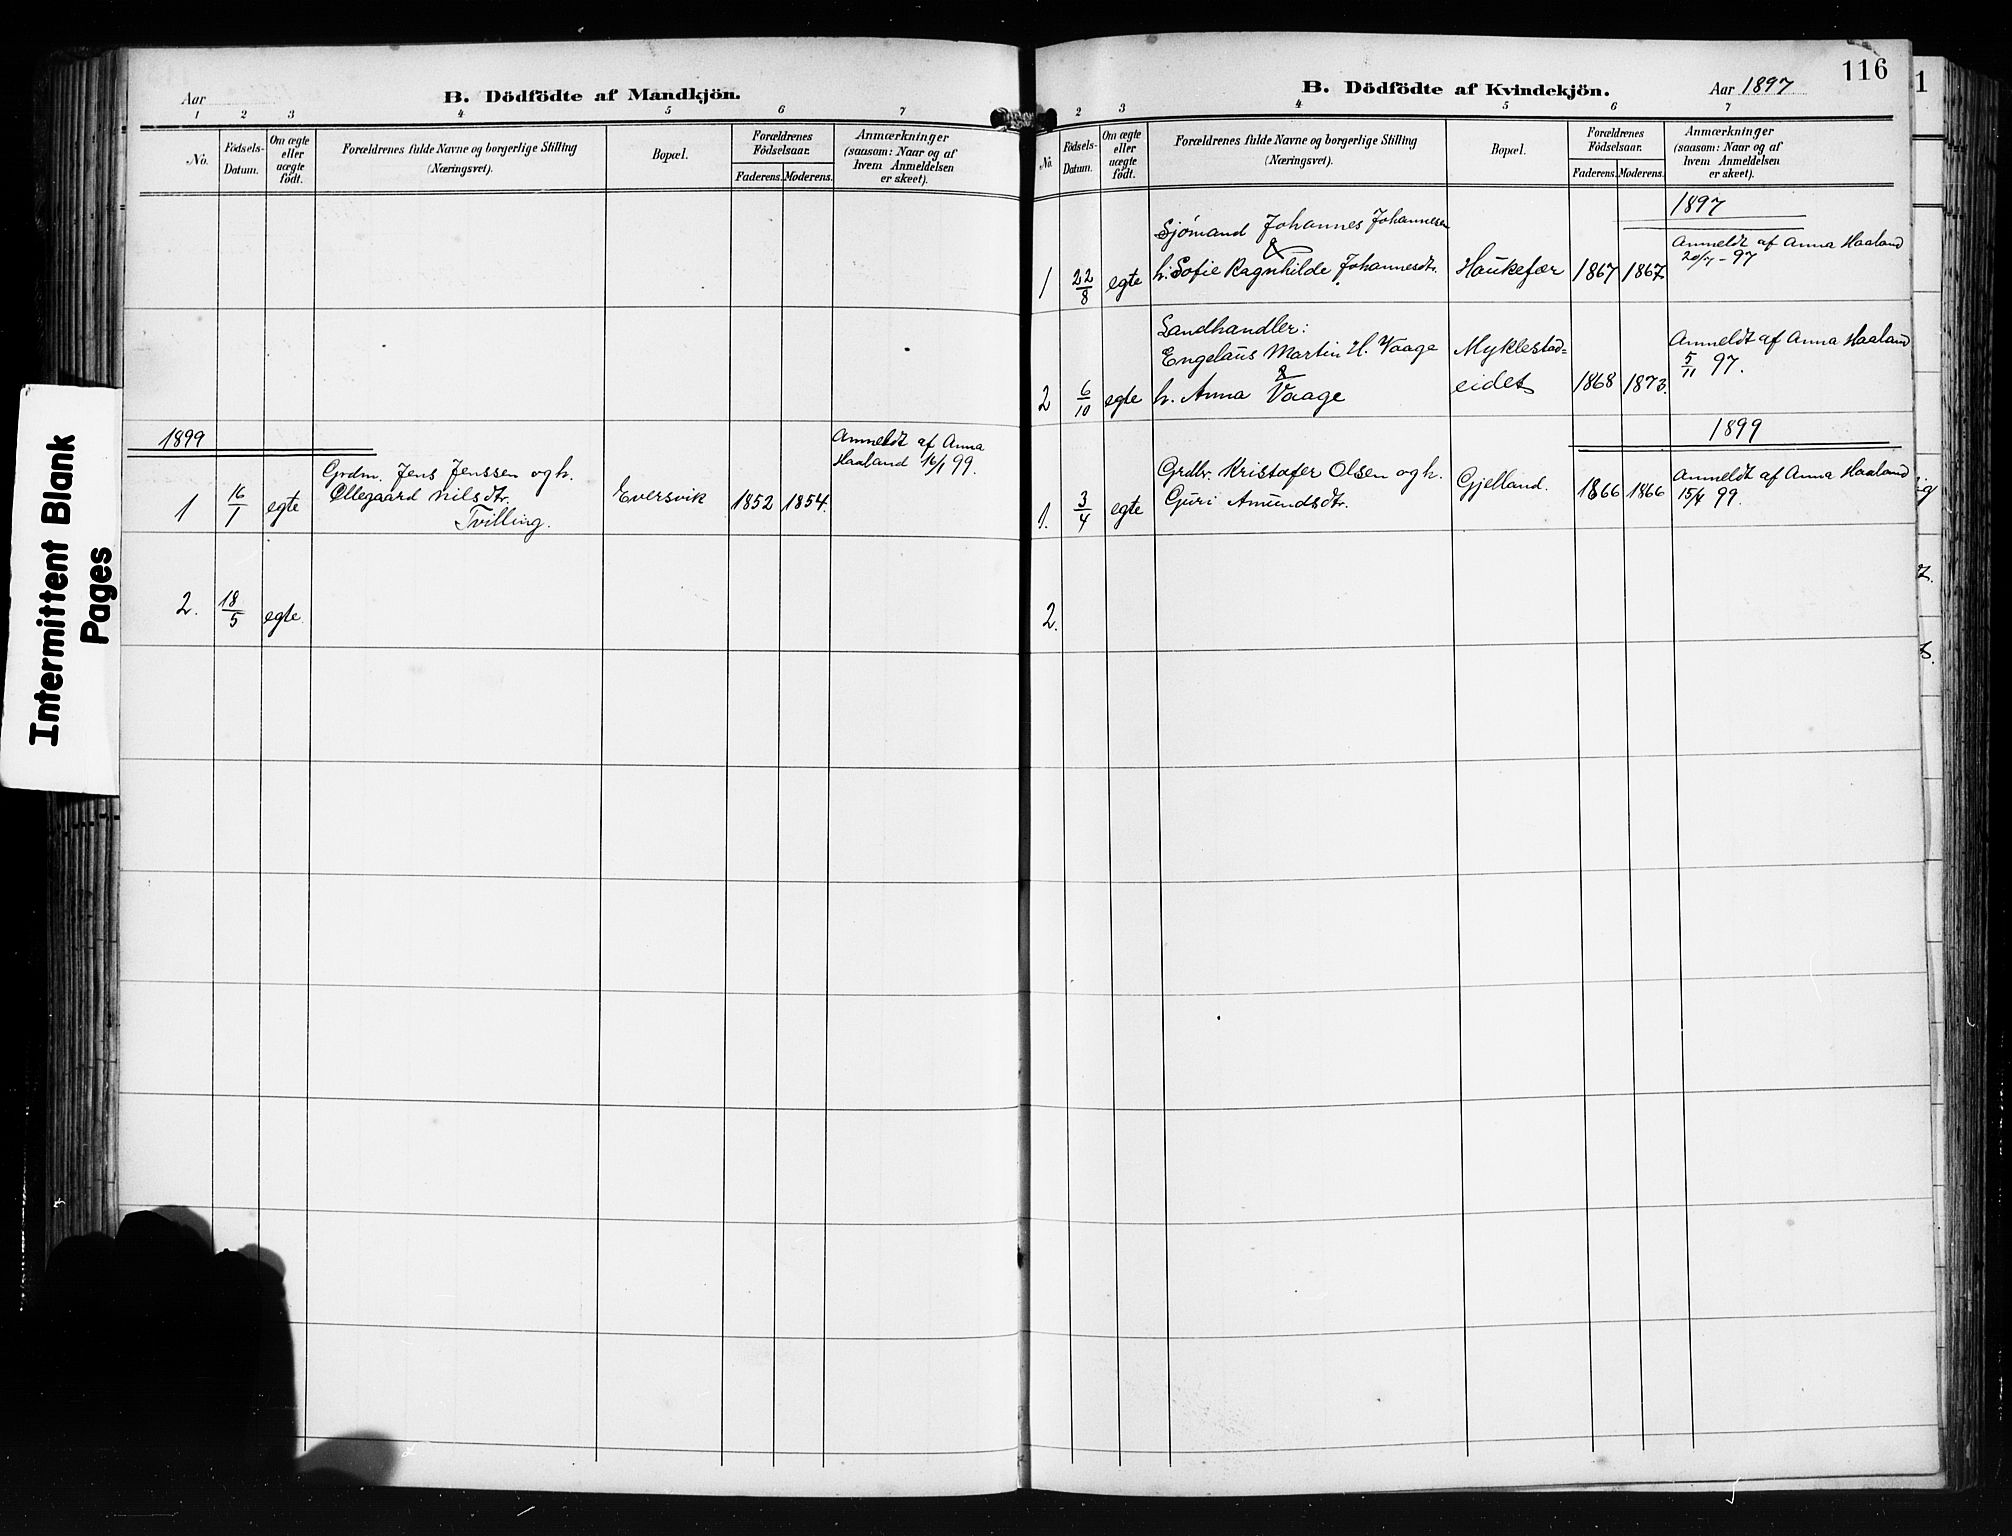 Intermittent Blank
Pages
Aar
B. Dödfödte af Mandkjön.
1 2 3 4 5 6 7
No.
Födsels-
Datum.
Om ægte
eller
uægte
födt.
Forældrenes fulde Navne og borgerlige Stilling
(Næringsvei).
Bopæl.
Forældrenes
Födselsaar.
Faderens. Moderens.
Anmærkninger
(saasom: Naar og af
hvem Anmeldelsen
er skeet).
1899
1 16/1 egte
Grdm. Jens Jenssen og h.
Ollegaard Nilsdtr.
Tvilling.
Eversvik 1852 1854.
Anmeldt af Anna
Haaland 16/1 99.
2. 18/5 egte.
116
B. Dödfödte af Kvindekjön.
Aar 1897
2 3 4 5 6 7
No.
Födsels-
Datum.
Om ægte
eller
uægte
födt.
Forældrenes fulde Navne og borgerlige Stilling
(Næringsvei).
Bopæl.
Forældrenes
Födselsaar.
Faderens. Moderens.
Anmærkninger
(saasom: Naar og af
hvem Anmeldelsen
er skeet).
1897
1 22/8 egte
Sjömand Johannes Johannesen
&
h. Sofie Ragnhilde Johannesdtr.
Haukefær 1867 1867.
Anmeldt af Anna Haaland
- 97
2 6/10 egte
Landhandler:
Engelaus Martin H. Vaage
&
h. Anna Vaage
Myklestad=
eidet 1868 1873.
Anmeldt af Anna Haaland
5/11 97.
1899
1. 3/4 egte
Grdbr. Kristofer Olsen og h.
Guri Amundsdtr.
Gjelland. 1866 1866
Anmeldt af Anna Haaland
15/4 99.
2.